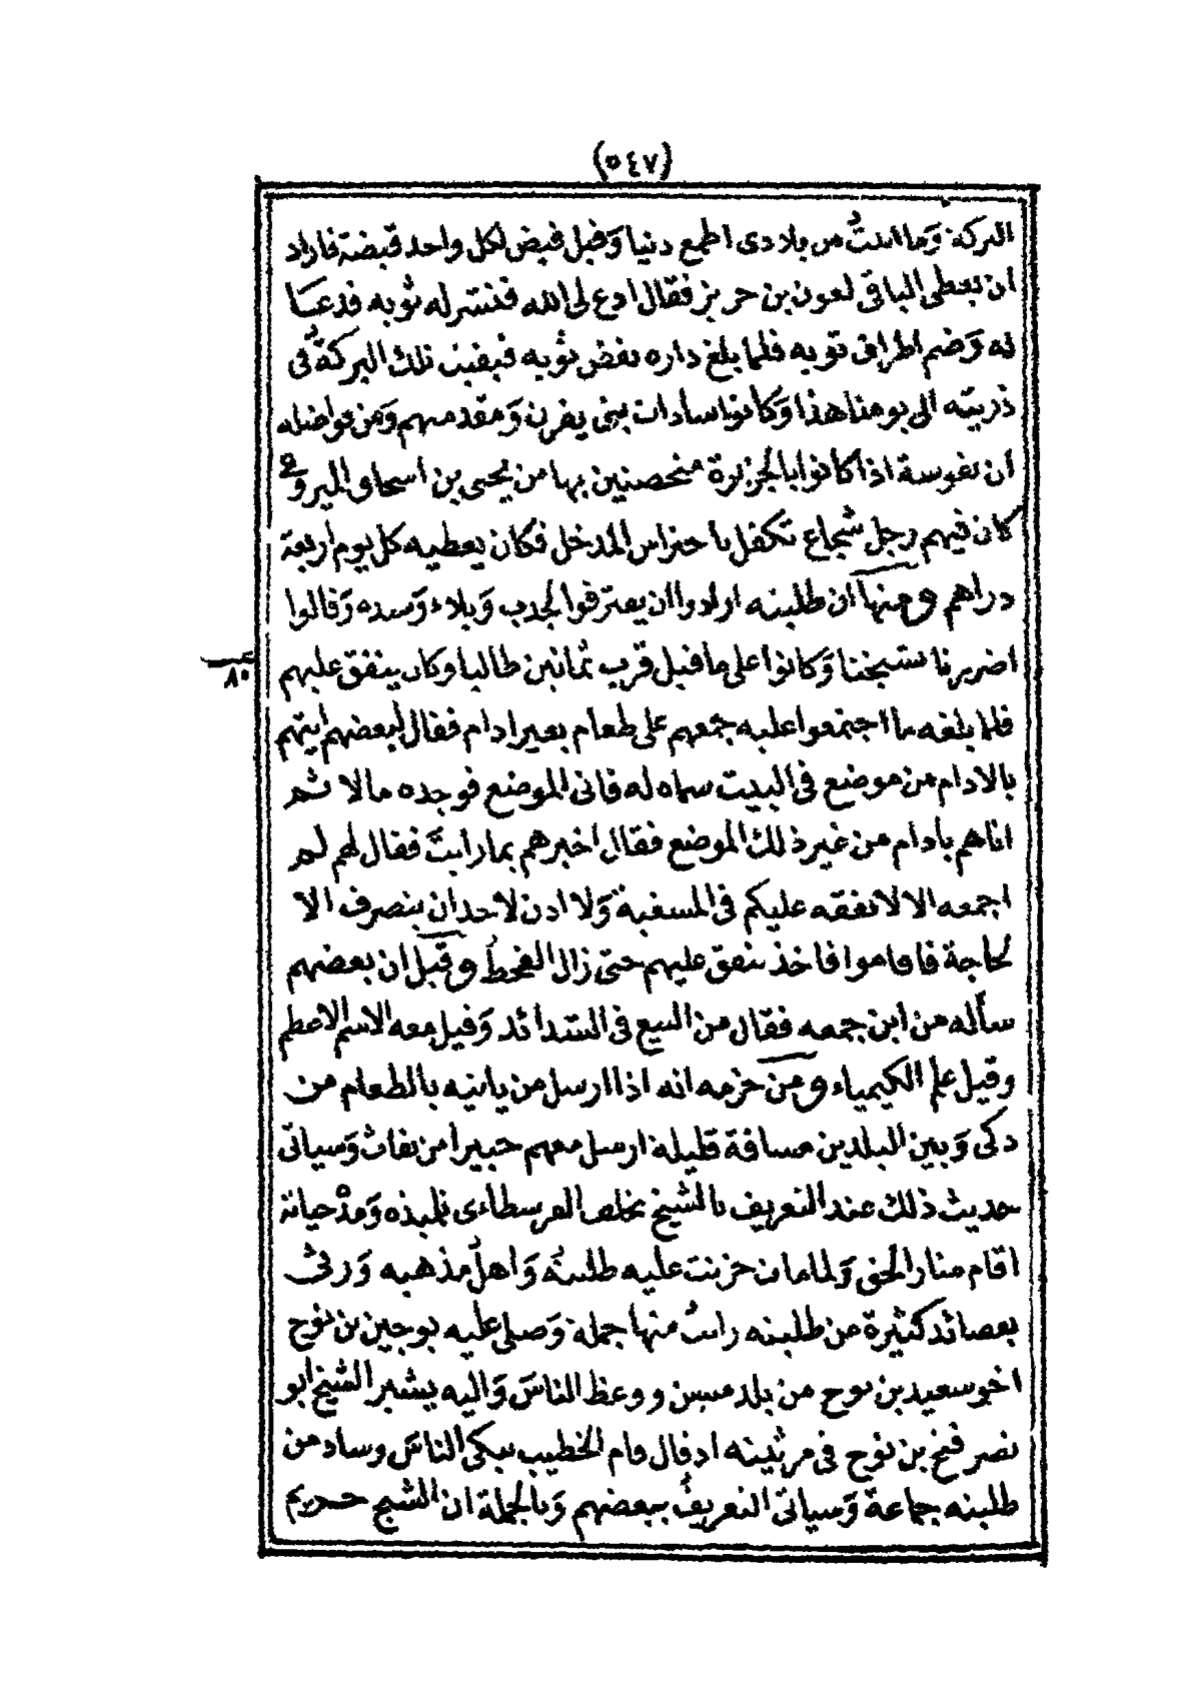 (٥٤٧)
البركة وما اتيت من بلادى اطمع دنيا وقيل قبض لكل واحد قبضة فاراد
ان يعطى الباقى لعون بن حريز فقال ادع لى الله فنشر له ثوبه فدعا
له وضم اطراف ثوبه فلما بلغ داره نفض ثوبه فبقيت تلك البركة فى
ذريته الى يومنا هذا وكانوا سادات بنى يفرن ومقدميهم ومن فواضله
ان نفوسة اذا كانوا بالجزيرة متحصنين بها من يحيى بن اسحاق الميرو
كان فيهم رجل شجاع تكفل باحتراس المدخل فكان يعطيه كل يوم اربعة
دراهم ومنها ان طلبته ارادوا ان يفترقوا لجدب وبلاء وسده وقالوا
اضررنا بشيخنا وكانوا على ما قيل قريب ثمانين طالبا وكان ينفق عليهم
٨٠
فلما بلغه ما اجتمعوا عليه جمعهم على طعام بغير ادام فقال لبعضهم ايتهم
بالادام من موضع فى البيت سماه له فاتى الموضع فوجده مالا ثم
اتاهم بادام من غير ذلك الموضع فقال اخبرهم بما رايت فقال لهم لم
اجمعه الا لانفقه عليكم فى المسغبة ولا اذن لاحد ان ينصرف الا
لحاجة فاقاموا فاخذ ينفق عليهم حتى زال القحط وقيل ان بعضهم
سأله من اين جمعه فقال من البيع فى الشدائد وقيل معه الاسم الاعظم
وقيل علم الكيمياء ومن حزمه انه اذا ارسل من ياتيه بالطعام من
دكى وبين البلدين مسافة قليلة ارسل معهم خبيرا من نفاث وسياتى
حديث ذلك عند التعريف بالشيخ يخلص الفرسطاءى تلميذه ومدة حياته
اقام منار الحق ولما مات حزنت عليه طلبته واهل مذهبه ورثى
بقصائد كثيرة من طلبته رايت منها جملة وصلى عليه بوجين بن نوح
اخو سعيد بن نوح من بلد ووعظ الناس واليه يشير الشيخ ابو
نصر فتح بن نوح فى مرثيته اذ قال قام الخطيب يبكى الناس وساد من
طلبته جماعة وسياتى التعريف ببعضهم وبالجملة ان الشيخ حريم